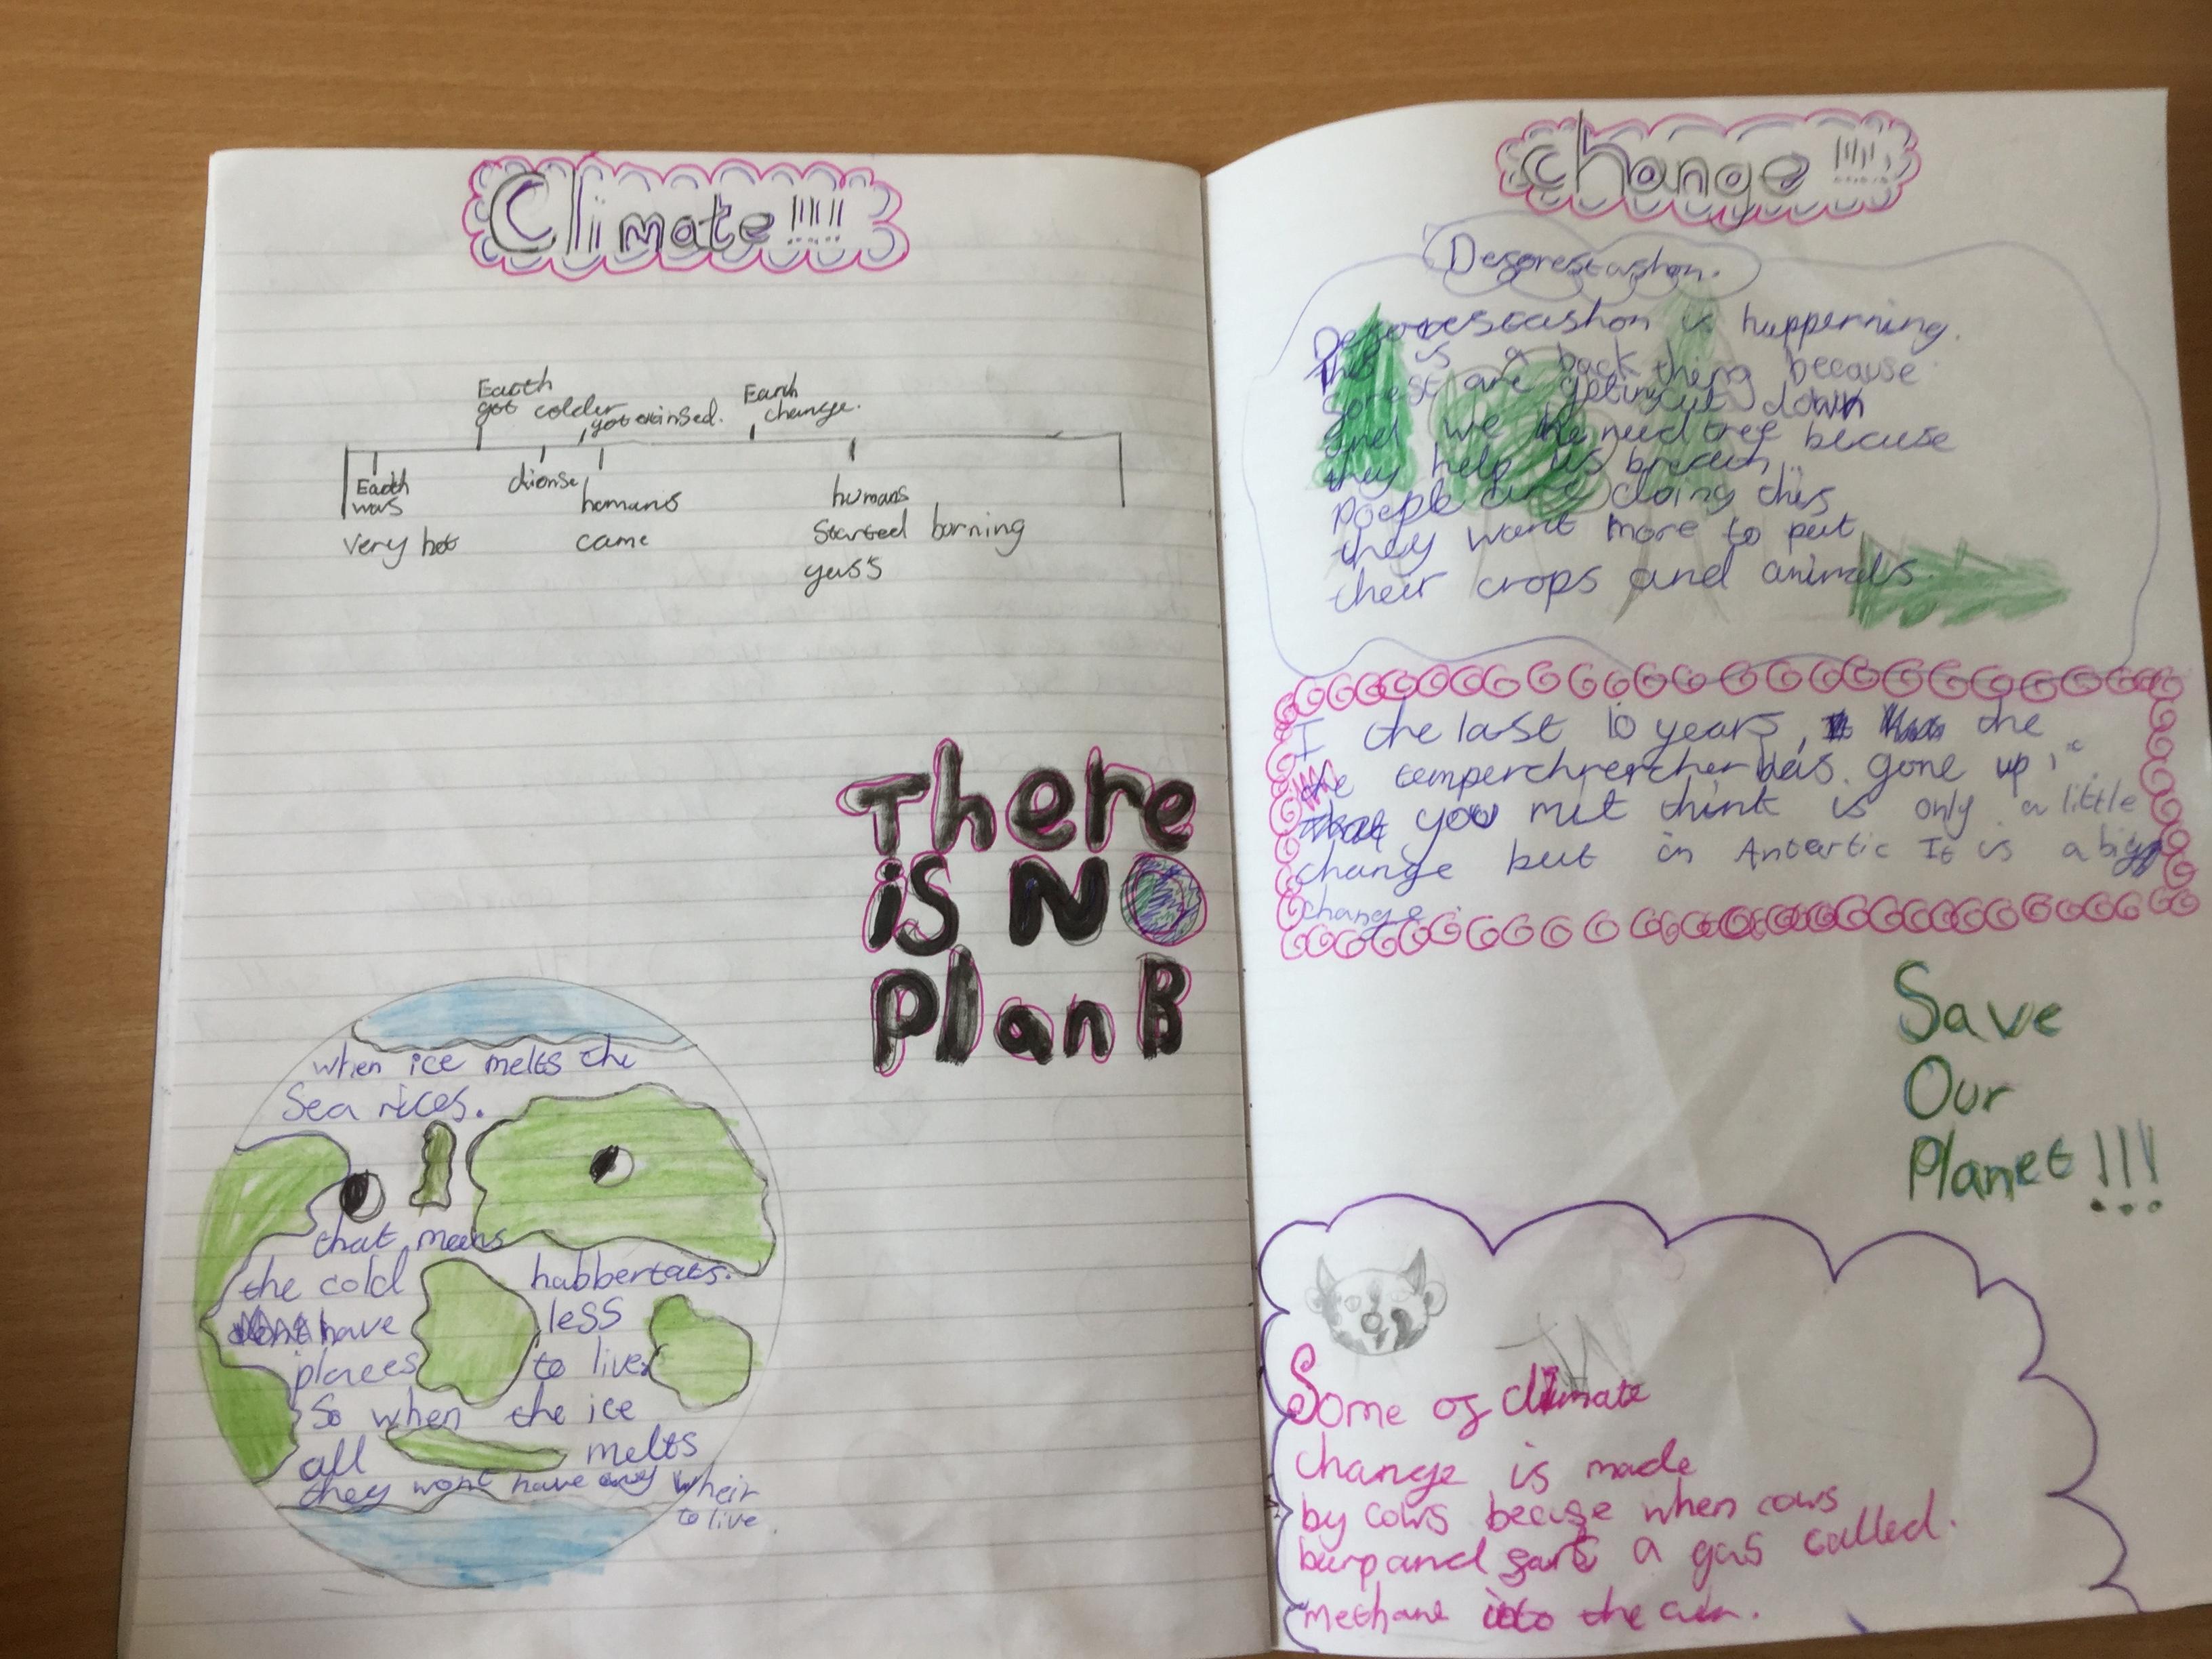 Climate!!!!!
Earth
got colder
got exinsed.
Earth
change.
Earth
was
Very hot
humans
came
humans
Started borning
gass
There
is NO
Plan B
when ice melts the
Sea rices.
that means
the cold habbertats.
have less
places to live.
So when the ice
all melts
they wont have any wheir
to live.
Change!!!!!
Deforestashon.
Deforestashon is happerning.
This is a back thing because
forest are geting cut down
and we need tree becuse
they help us breath.
Poeple are doing this
they want more to put
their crops and animals.
I the last 10 years, the
has gone up 1°c
you mit think is only a little
change but in Antartic It is a big
change.
Save
Our
Planet!!!
Some of climate
change is made
by cows becuse when cows
burp and fart a gas called.
methane into the air.